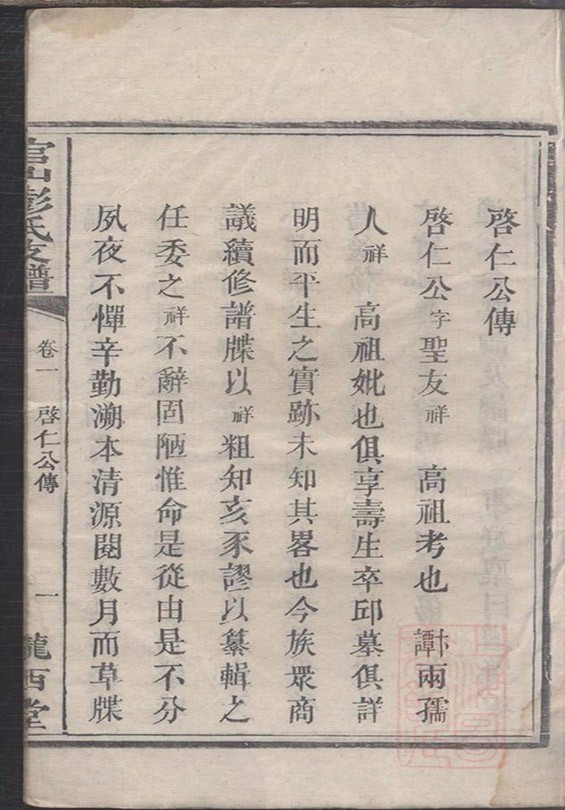 啓仁公傳
啓仁公字聖友祥 高祖考也 譚兩孺
人祥 高祖妣也俱享壽生卒邱墓俱詳
明而平生之實跡未知其畧也今族眾商
議續修譜牒以祥粗知亥豕謬以纂輯之
任委之祥不辭固陋惟命是從由是不分
夙夜不憚辛勤溯本清源閱數月而草牒
官山彭氏支譜
卷一 啓仁公傳 一
隴西堂